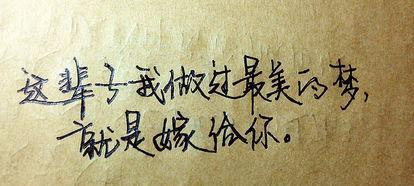 这辈子我做过最美的梦,
就是嫁给你。